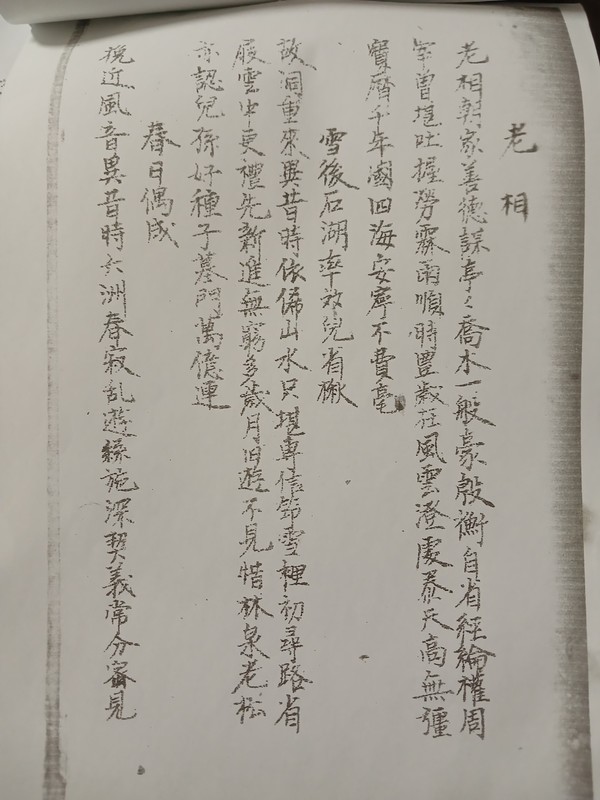 老相
老相朝家善德謀亭々喬木一般豪殷衡自省經綸權周
宰曾堪吐握勞霖雨順時豐歲在風雲澄處泰天高無彊
寶曆千年國四海安寧不費毫
雪後石湖率效兒省楸
故洞重來異昔時依俙山水只堪專信節雪裡初尋路省
履雲中更禮先新進無窮多歲月旧遊不見惜林泉老松
亦認兒孫好種子墓門萬億連
春日偶成
挽近風音異昔時六洲春寂乱遊絲施深契義常分審見